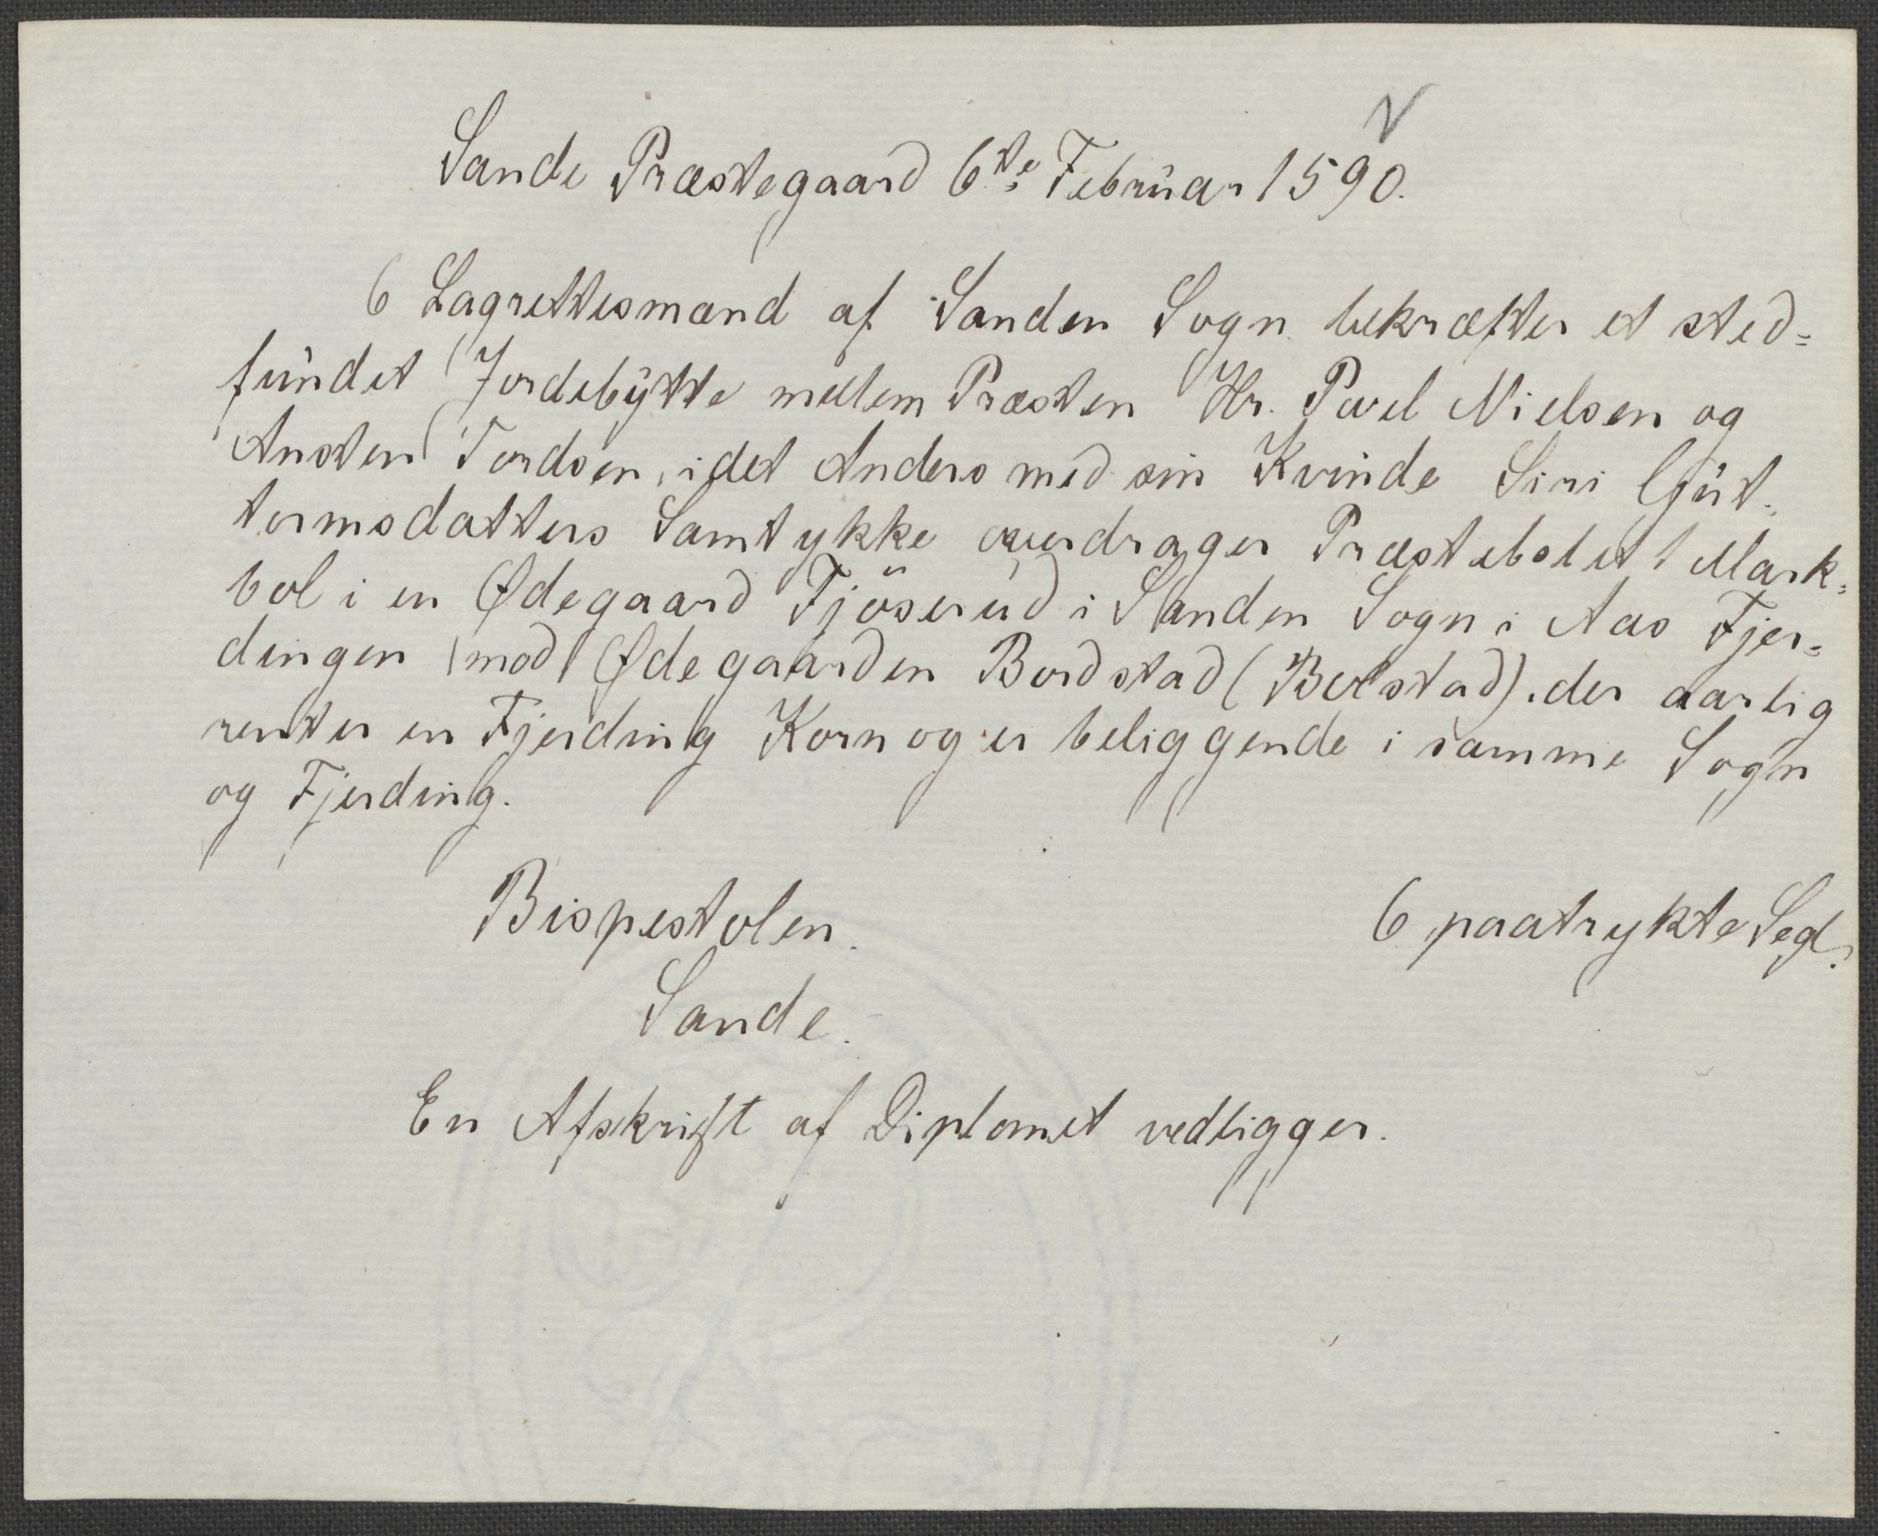 Sande Præstegaard 6te Februar 1590.
6 Lagrettesmænd af Sanden Sogn bekræfter et sted=
fundet Jordebytte mellem Præsten Hr. Pavel Nielsen og
Ansten Tordsen, idet Anders med sin Kvinde Siri Gut=
tormsdatters Samtykke overdrager Præstebolet 1 Mark=
bol i en Ødegaard Fjöserud i Sanden Sogn i Aas Fjer=
dingen mod Ødegaarden Bordstad (Bolstad), der aarlig
renter en Fjerding Korn og er beliggende i samme Sogn
og Fjerding.
Bispestolen. 6 paatrykte Segl.
Sande.
En Afskrift af Diplomet vedligger.